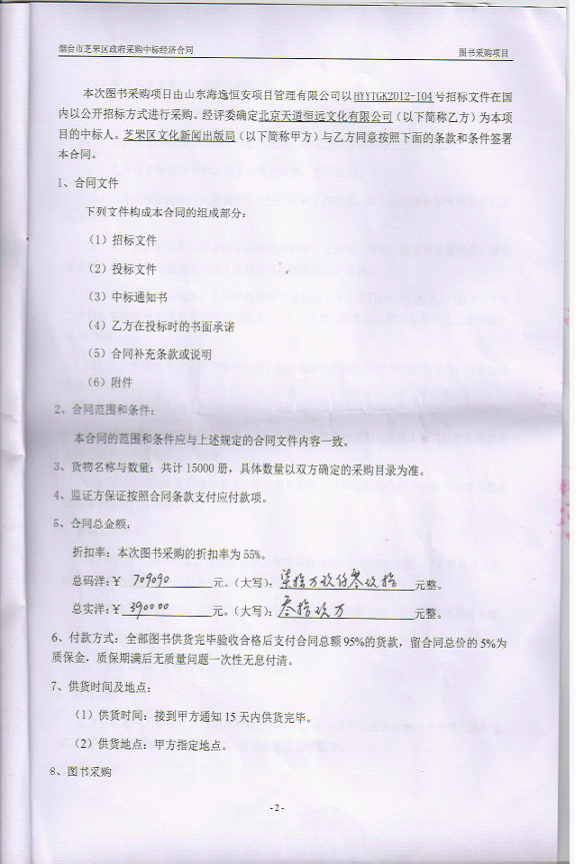 烟台市芝罘区政府采购中标经济合同 图书采购项目
本次图书采购项目由山东海逸恒安项目管理有限公司以HYYTGK2012-104号招标文件在国
内以公开招标方式进行采购。经评委确定北京天道恒远文化有限公司（以下简称乙方）为本项
目的中标人。芝罘区文化新闻出版局（以下简称甲方）与乙方同意按照下面的条款和条件签署
本合同。
1、合同文件
下列文件构成本合同的组成部分：
（1）招标文件
（2）投标文件
（3）中标通知书
（4）乙方在投标时的书面承诺
（5）合同补充条款或说明
（6）附件
2、合同范围和条件：
本合同的范围和条件应与上述规定的合同文件内容一致。
3、货物名称与数量：共计15000册，具体数量以双方确定的采购目录为准。
4、监证方保证按照合同条款支付应付款项。
5、合同总金额：
折扣率：本次图书采购的折扣率为55%。
总码洋：￥ 709090 元。（大写）：柒拾万玖仟零玖拾 元整。
总实洋：￥ 390000 元。（大写）：叁拾玖万 元整。
6、付款方式：全部图书供货完毕验收合格后支付合同总额95%的货款，留合同总价的5%为
质保金，质保期满后无质量问题一次性无息付清。
7、供货时间及地点：
（1）供货时间：接到甲方通知15天内供货完毕。
（2）供货地点：甲方指定地点。
8、图书采购
- 2 -